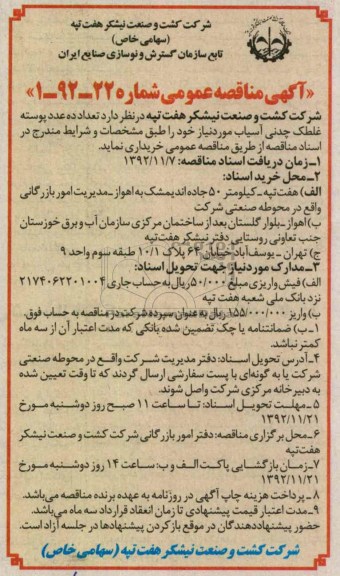 شرکت کشت و صنعت نیشکر هفت تپه
(سهامی خاص)
تابع سازمان گسترش و نوسازی صنایع ایران
«آگهی مناقصه عمومی شماره ۲۲-۹۲-۱»
شرکت کشت و صنعت نیشکر هفت تپه در نظر دارد تعداد ده عدد پوسته
غلطک چدنی آسیاب مورد نیاز خود را طبق مشخصات و شرایط مندرج در
اسناد مناقصه از طریق مناقصه عمومی خریداری نماید.
۱-زمان دریافت اسناد مناقصه: ۱۳۹۲/۱۱/۷
۲-محل خرید اسناد:
الف) هفت تپه- کیلومتر ۵۰ جاده اندیمشک به اهواز-مدیریت امور بازرگانی
واقع در محوطه صنعتی شرکت
ب) اهواز-بلوار گلستان بعد از ساختمان مرکزی سازمان آب و برق خوزستان
جنب تعاونی روستایی دفتر نیشکر هفت تپه
ج) تهران - یوسف آباد خیابان ۶۴ پلاک ۱۰/۱ طبقه سوم واحد ۹
۳-مدارک مورد نیاز جهت تحویل اسناد:
الف) فیش واریزی مبلغ ۵۰/۰۰۰ ریال به حساب جاری ۲۱۷۴۰۶۲۲۰۱۰۰۴
نزد بانک ملی شعبه هفت تپه
ب) واریز ۱۵۵/۰۰۰/۰۰۰ ریال به عنوان سپرده شرکت در مناقصه به حساب فوق.
۱-ب) ضمانتنامه یا چک تضمین شده بانکی که مدت اعتبار آن از سه ماه
کمتر نباشد.
۴-آدرس تحویل اسناد: دفتر مدیریت شرکت واقع در محوطه صنعتی
شرکت یا به گونه‌ای با پست سفارشی ارسال گردند که تا وقت تعیین شده
به دبیرخانه مرکزی شرکت واصل شوند.
۵-مهلت تحویل اسناد: تا ساعت ۱۱ صبح روز دوشنبه مورخ
۱۳۹۲/۱۱/۲۱
۶-محل برگزاری مناقصه: دفتر امور بازرگانی شرکت کشت و صنعت نیشکر
هفت تپه
۷-زمان بازگشایی پاکت الف و ب: ساعت ۱۴ روز دوشنبه مورخ
۱۳۹۲/۱۱/۲۱
۸-پرداخت هزینه چاپ آگهی در روزنامه به عهده برنده مناقصه می‌باشد.
۹-مدت اعتبار قیمت پیشنهادی تا زمان انعقاد قرارداد سه ماه می‌باشد.
حضور پیشنهاددهندگان در موقع باز کردن پیشنهادها در جلسه آزاد است.
شرکت کشت و صنعت نیشکر هفت تپه (سهامی خاص)